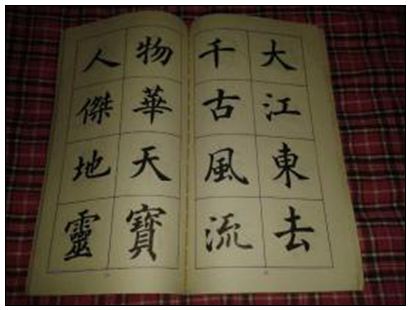 大江東去
千古風流
物華天寶
人傑地靈